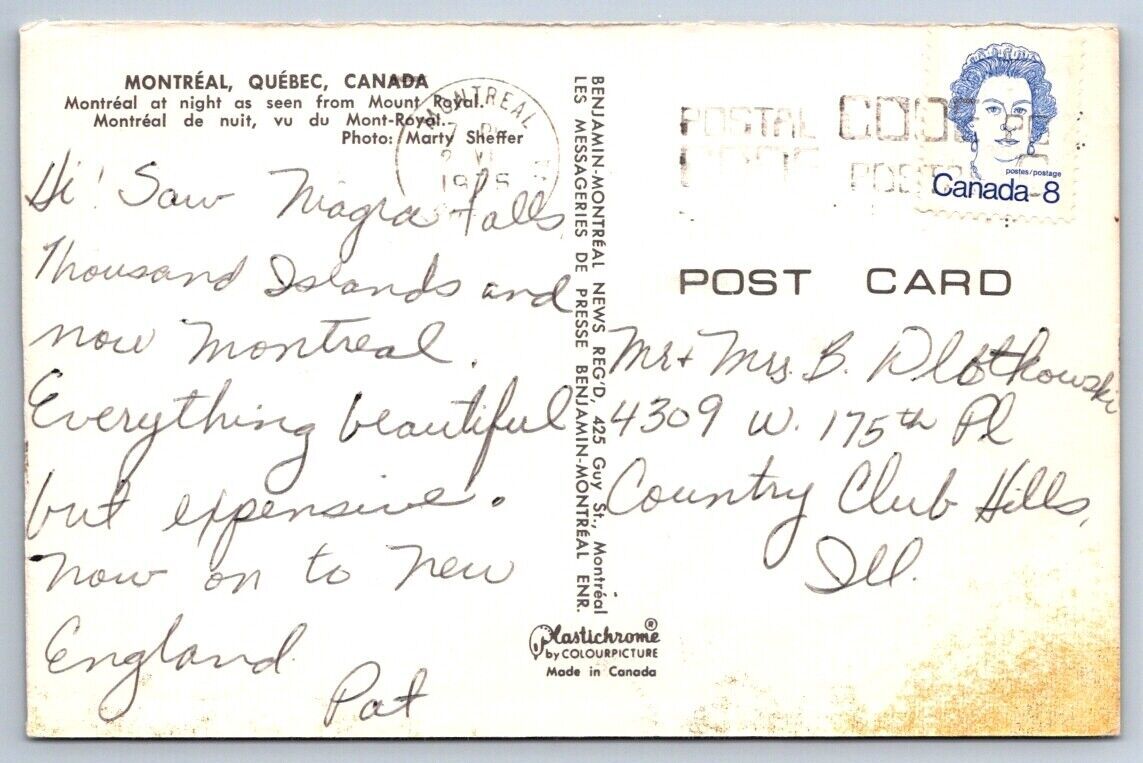 MONTRÉAL, QUÉBEC, CANADA
Montréal at night as seen from Mount Royal.
Montréal de nuit, vu du Mont-Royal.
Photo: Marty Sheffer
Hi! Saw Niagra Falls,
Thousand Islands and
now Montreal.
Everything beautiful
but expensive.
Now on to New
England.
Pat
BENJAMIN-MONTRÉAL NEWS REG'D, 425 GUY St., Montréal
LES MESSAGERIES DE PRESSE BENJAMIN-MONTRÉAL ENR.
Plastichrome®
by COLOURPICTURE
Made in Canada
MONTREAL
POSTAL CODE
CODE POSTAL
postes/postage
Canada 8
POST CARD
Mr + Mrs. B. Dlotkowski
4309 W. 175th Pl
Country Club Hills,
Ill.